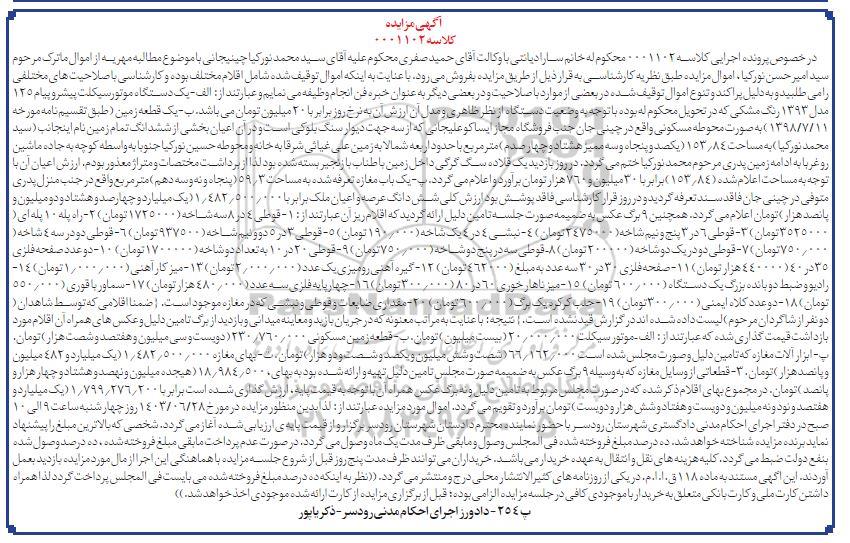 آگهی مزایده
کلاسه ۰۰۰۱۱۰۲
در خصوص پرونده اجرایی کلاسه ۰۰۰۱۱۰۲ محکوم له خانم سارا دیانتی با وکالت آقای حمید صفری محکوم علیه آقای سید محمد نورکیا چینیجانی با موضوع مطالبه مهریه از اموال ماترک مرحوم
سید امیرحسن نورکیا، اموال مزایده طبق نظریه کارشناسی به قرار ذیل از طریق مزایده بفروش می‌رود. با عنایت به اینکه اموال توقیف شده شامل اقلام مختلف بوده و کارشناسی با صلاحیت های مختلفی
را می طلبید و به دلیل پراکند و تنوع اموال توقیف شده در بعضی از موارد با صلاحیت و در بعضی دیگر به عنوان خبره فن انجام وظیفه می نمایم و عبارتند از: الف-یک دستگاه موتورسیکلت پیشرو پیام ۱۲۵
مدل ۱۳۹۳ رنگ مشکی که در تحویل محکوم له بوده با توجه به وضعیت دستگاه از نظر ظاهری و مدل آن ارزش آن به نرخ روز برابر با ۲۰ میلیون تومان می باشد. ب-یک قطعه زمین (طبق تقسیم نامه مورخه
۱۳۹۸/۷/۱۱) به صورت محوطه مسکونی واقع در چینی جان جنب فروشگاه مجاز ایساکو علیجانی که از سه جهت دیوار سنگ بلوکی است و در آن اعیان بخشی از ششدانگ تمام زمین نام اینجانب (سید
محمد نورکیا) به مساحت ۱۵۳٫۸۴ (یکصد و پنجاه و سه ممیز هشتاد و چهار صدم) متر مربع با حدود اربعه شمالا به زمین علی غیاثی شرقا به خانه و محوطه حسین نورکیا جنوبا به واسطه کوچه به جاده ماشین
رو غربا به ادامه زمین پدری مرحوم محمد نورکیا ختم می گردد. در روز بازدید یک قلاده سگ گرگی داخل زمین با طناب یا زنجیر بسته شده بود لذا از برداشت مختصات و متراژ معذور بودم، ارزش اعیان آن با
توجه به مساحت اعلام شده (۱۵۳٫۸۴) برابر با ۳۰ میلیون و ۷۶۰ هزار تومان برآورد و اعلام می گردد. پ-یک باب مغازه تعرفه شده به مساحت ۵۹٫۳ (پنجاه و نه و سه دهم) متر مربع واقع در جنب منزل پدری
متوفی در چینی جان فاقد سند تعرفه گردید و در روز قرار کارشناسی فاقد پوشش بود ارزش کلی شش دانگ عرصه و اعیان ملک برابر با ۱٫۴۸۲٫۵۰۰٫۰۰۰ (یک میلیارد و چهارصد و هشتاد و دو میلیون و
پانصد هزار) تومان اعلام می گردد. همچنین ۹ برگ عکس به ضمیمه صورت جلسه تامین دلیل ارائه گردید که اقلام ریز آن عبارتند از: ۱-قوطی ۴ در ۸ سه شاخه (۱۷۲۵۰۰۰ تومان) ۲- راه پله ۱۰ پله ای (
۳۵۲۵۰۰۰ تومان) ۳-قوطی ۶ در ۳ پنج و نیم شاخه (۲۴۷۵۰۰۰ تومان) ۴- نبشی ۴ در ۴ یک شاخه (۱۹۰٫۰۰۰ تومان) ۵-قوطی ۳ در ۵ دو و نیم شاخه (۹۳۷۵۰۰ تومان) ۶-قوطی دو در سه ۴ شاخه
(۷۵۰٫۰۰۰ تومان) ۷-قوطی دو در یک دو شاخه (۲۰۰۰۰۰ تومان) ۸-قوطی سه در پنج دو شاخه (۷۵۰٫۰۰۰ تومان) ۹-قوطی ۲۰ در ۱۰ به تعداد دو شاخه (۱۷۰۰۰۰۰ تومان) ۱۰-دو عدد صفحه فلزی
۳۵ در ۴۰ (۴۴۰۰۰۰ هزار تومان) ۱۱-صفحه فلزی ۳۰ در ۳۰ سه عدد به مبلغ (۴۶۲۰۰۰ تومان) ۱۲-گیره آهنی رومیزی یک عدد (۲٫۰۰۰٫۰۰۰ تومان) ۱۳-میز کار آهنی (۱٫۰۰۰٫۰۰۰ تومان) ۱۴-
رادیو و ضبط دو بانده بزرگ یک دستگاه (۶۰۰٫۰۰۰ تومان) ۱۵-میز ناهارخوری ۶۰ در ۸۰ (۳۰۰٫۰۰۰ تومان) ۱۶-چهارپایه فلزی سه عدد (۴۸۰٫۰۰۰ هزار تومان) ۱۷-سماور با قوری (۵۵۰٫۰۰۰
تومان) ۱۸-دو عدد کلاه ایمنی (۳۰۰٫۰۰۰ تومان) ۱۹-جلب کرکره یک برگ (۶۰۰٫۰۰۰ تومان) ۲۰-مقداری ضایعات و قوطی و نبشی که در مغازه موجود است. (ضمنا اقلامی که توسط شاهدان (
دو نفر از شاگردان مرحوم) لیست داده شده اند در گزارش قید نشده است.) نتیجه: با عنایت به مراتب معنونه که در جریان بازید و معاینه میدانی و بازدید از برگ تامین دلیل و عکس های همراه آن اقلام مورد
بازداشت قیمت گذاری شده که عبارتند از: الف-موتور سیکلت ۲۰٫۰۰۰٫۰۰۰ (بیست میلیون) تومان. ب-قطعه زمین مسکونی ۲۳۰٫۷۶۰٫۰۰۰ (دویست و سی میلیون و هفتصد و شصت هزار) تومان.
پ-ابزار آلات مغازه که تامین دلیل و صورت مجلس شده است ۶۶٫۱۶۲٫۰۰۰ (شصت و شش میلیون و یکصد و شصت و دو هزار) تومان. ت-بهای مغازه ۱٫۴۸۲٫۵۰۰٫۰۰۰ (یک میلیارد و ۴۸۲ میلیون
و پانصد هزار) تومان. ۳-قطعاتی از وسایل مغازه که به وسیله ۹ برگ عکس به ضمیمه صورت مجلس تامین دلیل تهیه و ارائه شده بود به بهای ۱۸٫۹۸۴٫۵۰۰ (هیجده میلیون و نهصد و هشتاد و چهار هزار و
پانصد) تومان. در مجموع بهای اقلام ذکر شده که در صورت مجلس مربوط به تامین دلیل و نه برگ عکس همراه آن با توجه به قیمت پایه، ارزش گذاری شده است برابر با ۱٫۷۹۹٫۲۷۶٫۲۰۰ (یک میلیارد و
هفتصد و نود و نه میلیون و دویست و هفتاد و شش هزار و دویست) تومان برآورد و تقویم می گردد. اموال مورد مزایده عبارتند از: لذا بدین منظور مزایده در مورخ ۱۴۰۳/۰۶/۲۸ روز چهارشنبه ساعت ۹ الی ۱۰
صبح در دفتر اجرای احکام مدنی دادگستری شهرستان رودسر با حضور نماینده محترم دادستان شهرستان رودسر برگزار و از قیمت پایه ی ارزیابی شده آغاز می گردد. شخصی که بالاترین مبلغ را پیشنهاد
نماید برنده مزایده شناخته خواهد شد. ده درصد مبلغ فروخته شده فی المجلس وصول و مابقی ظرف مدت یک ماه وصول می گردد. در صورت عدم پرداخت مابقی مبلغ فروخته شده، ده درصد وصول شده
بنفع دولت ضبط می گردد. کلیه هزینه های نقل و انتقال به عهده خریدار می باشد. خریداران می توانند ظرف مدت پنج روز قبل از شروع جلسه مزایده با هماهنگی این اجرا از مال مورد مزایده بازدید بعمل
آوردند. این آگهی مستند به ماده ۱۱۸ ق.ا.ا.م. در یکی از روزنامه های کثیر الانتشار محلی درج و منتشر می گردد. ((نظر به اینکه ده درصد مبلغ فروخته شده می بایست فی المجلس پرداخت گردد لذا همراه
داشتن کارت ملی و کارت بانکی متعلق به خریدار با موجودی کافی در جلسه مزایده الزامی بوده؛ قبل از برگزاری مزایده از کارت ارائه شده موجودی اخذ خواهد شد.))
پ ۲۵۴- دادورز اجرای احکام مدنی رودسر-ذکریاپور